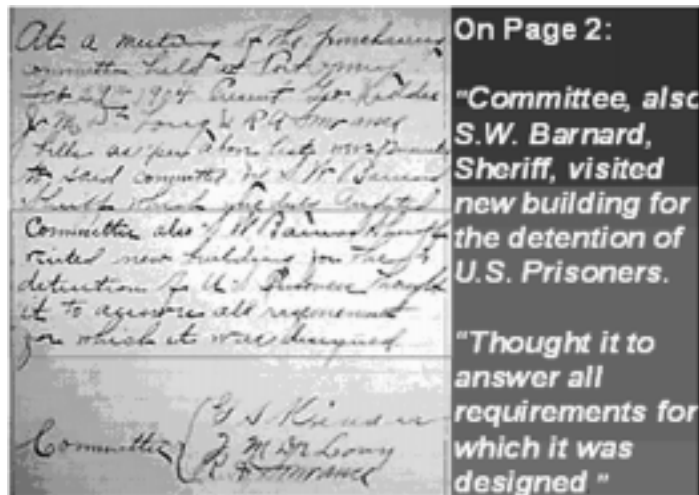 At a meeting of the purchasing
committee held at Port
1904 Present Geo.
& R A
Bills as per above list were
to said committee by S. W. Barnard
Sheriff which were duly Audited
Committee also S W Barnard Sheriff
visited new building for the
detention of U.S. Prisoners Thought
it to answer all requirements
for which it was designed
Committee
On Page 2:
"Committee, also
S.W. Barnard,
Sheriff, visited
new building for
the detention of
U.S. Prisoners.
"Thought it to
answer all
requirements for
which it was
designed "